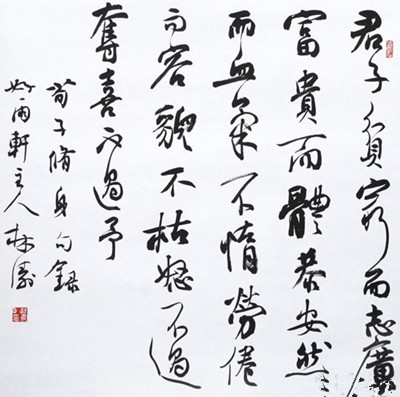 君子貧窮而志廣
富貴而體恭安然
而血氣不惰勞倦
而容貌不枯怒不過
奪喜不過予
荀子脩身句錄
雨軒主人林